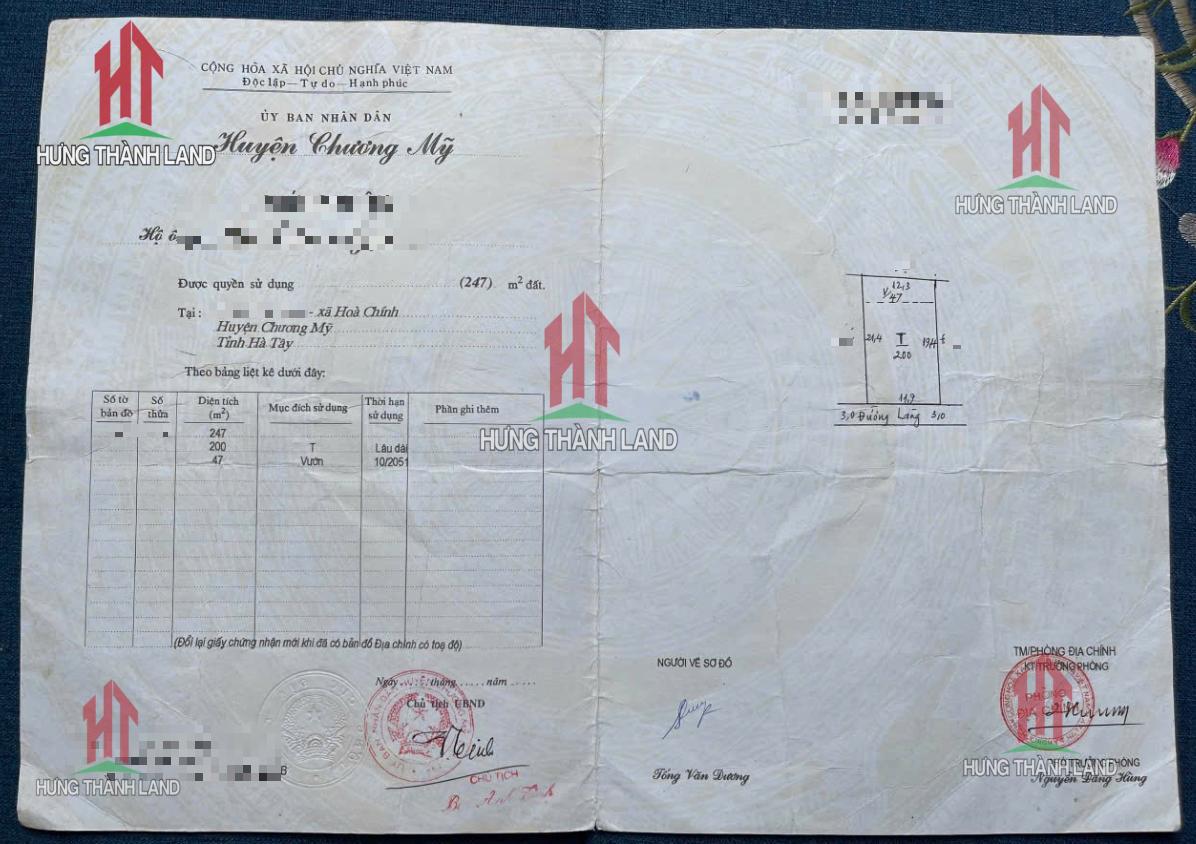 CỘNG HÒA XÃ HỘI CHỦ NGHĨA VIỆT NAM
Độc lập — Tự do — Hạnh phúc
ỦY BAN NHÂN DÂN
Huyện Chương Mỹ
Hộ
Được quyền sử dụng (247) m² đất.
Tại : - xã Hoà Chính
Huyện Chương Mỹ
Tỉnh Hà Tây
Theo bảng liệt kê dưới đây:
Số tờ bản đồ Số thửa Diện tích (m²) Mục đích sử dụng Thời hạn sử dụng Phần ghi thêm
247
200 T Lâu dài
47 Vườn 10/2051
(Đổi lại giấy chứng nhận mới khi đã có bản đồ Địa chính có toạ độ)
Ngày tháng năm
Chủ tịch UBND
CHỦ TỊCH
12,3
V/47
21,4 T 19,4
200
11,9
3,0 Đường Làng 3,0
NGƯỜI VẼ SƠ ĐỒ
Tống Văn Dương
TM/PHÒNG ĐỊA CHÍNH
KT/TRƯỞNG PHÒNG
PHÒNG
ĐỊA CHÍNH
PHÓ TRƯỞNG PHÒNG
Nguyễn Đăng Hùng
HT
HƯNG THÀNH LAND
HT
HƯNG THÀNH LAND
HT
HƯNG THÀNH LAND
HT
HƯNG THÀNH LAND
HT
HƯNG THÀNH LAND